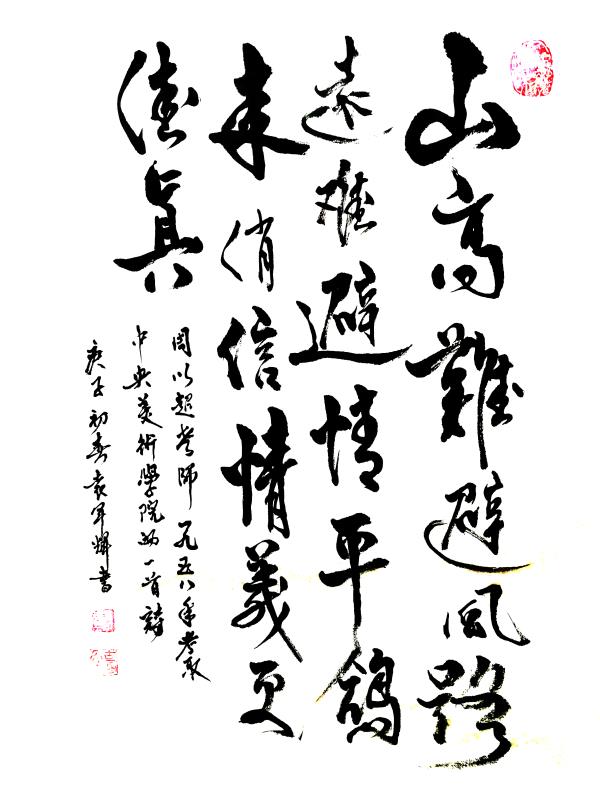 山高難避風路
遠难避情平鴿
来俏信情義更
真
周以超老師一九五八年考取
中央美術學院的一首詩
庚子初春袁军輝書